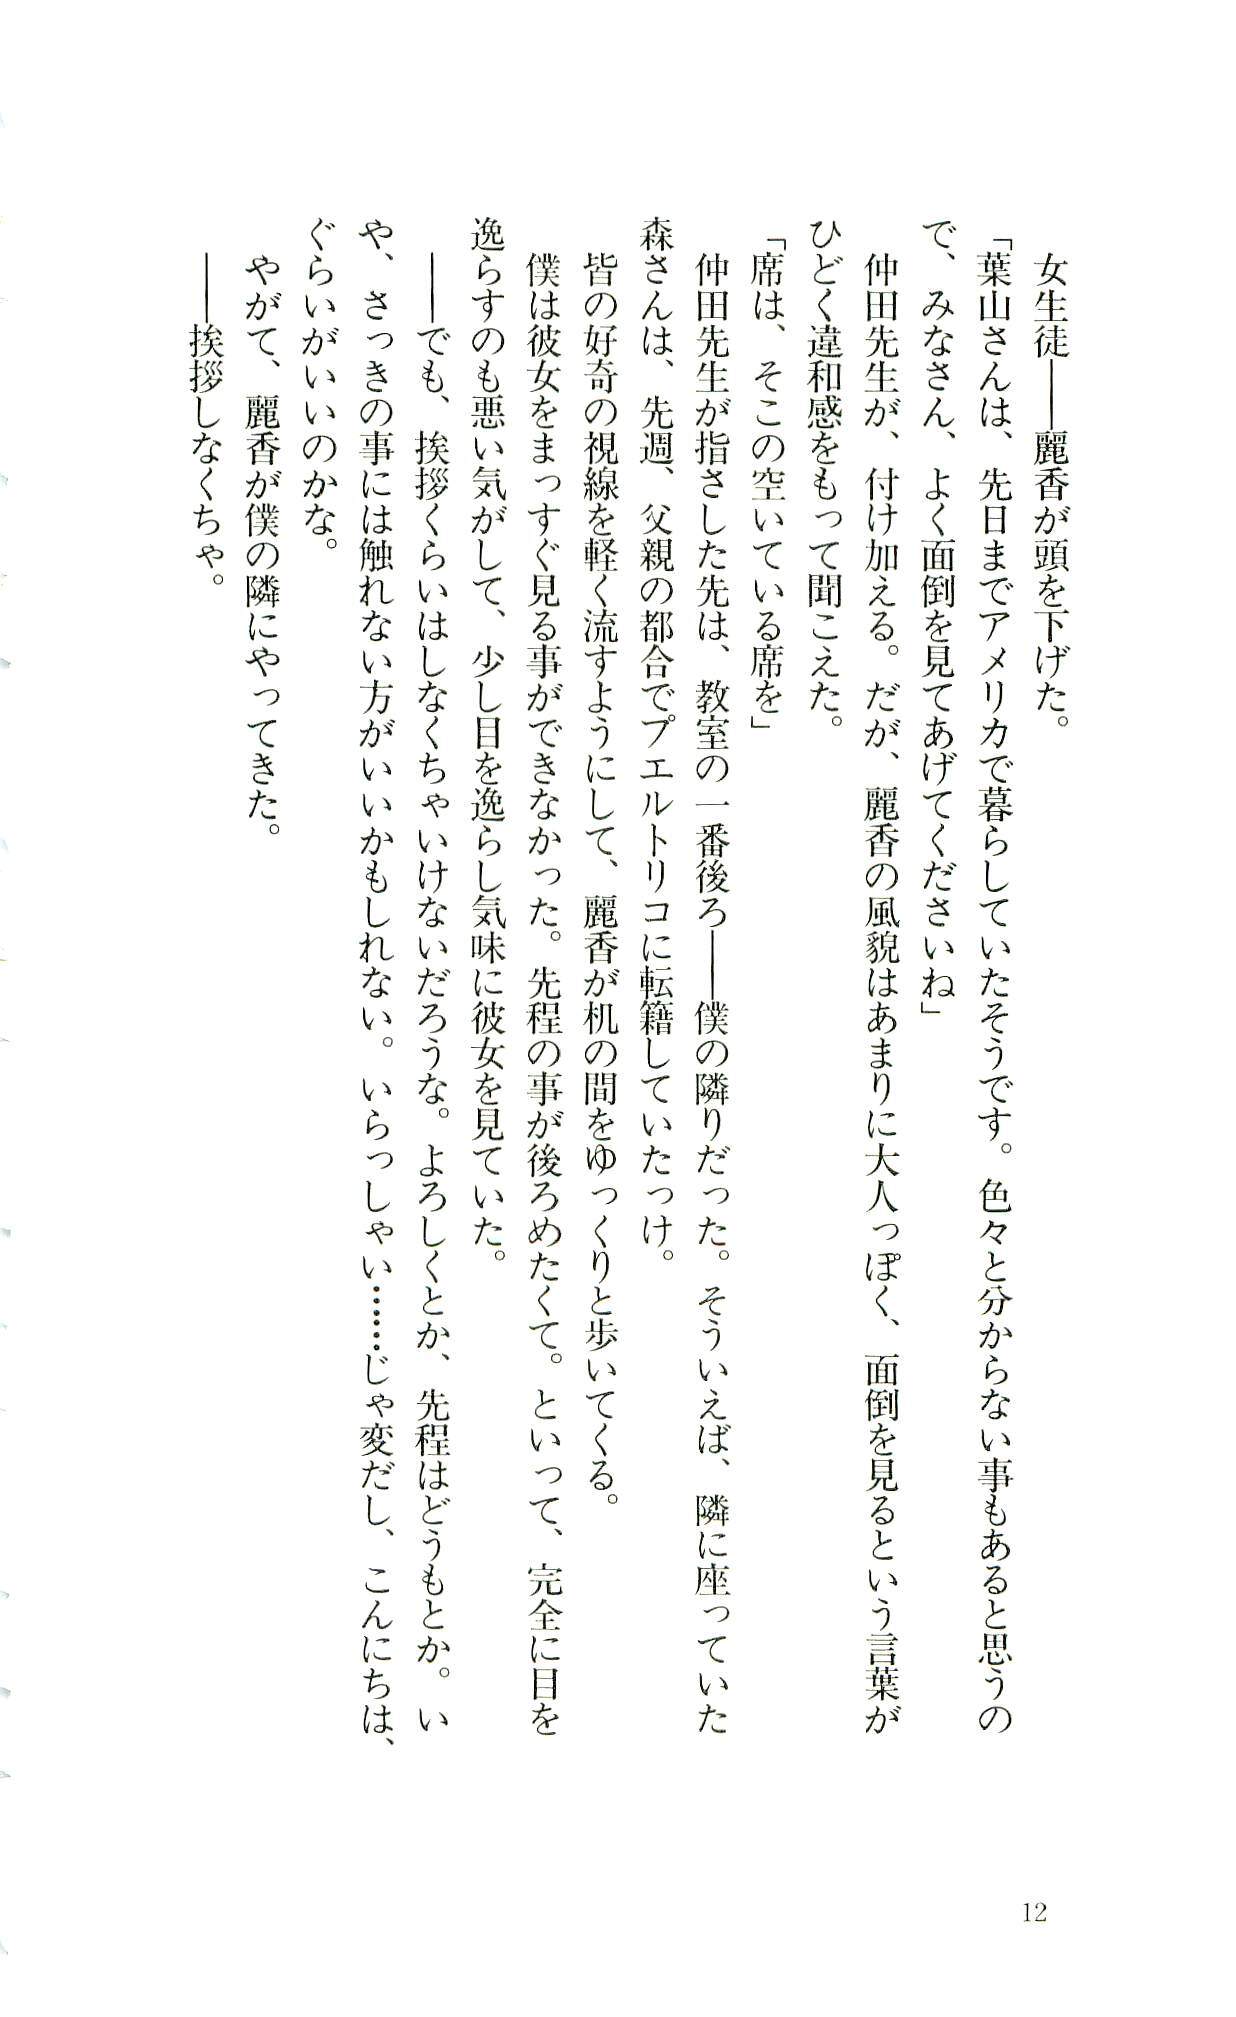 女生徒――麗香が頭を下げた。
「葉山さんは、先日までアメリカで暮らしていたそうです。色々と分からない事もあると思うの
で、みなさん、よく面倒を見てあげてくださいね」
仲田先生が、付け加える。だが、麗香の風貌はあまりに大人っぽく、面倒を見るという言葉が
ひどく違和感をもって聞こえた。
「席は、そこの空いている席を」
仲田先生が指さした先は、教室の一番後ろ――僕の隣りだった。そういえば、隣に座っていた
森さんは、先週、父親の都合でプエルトリコに転籍していたっけ。
皆の好奇の視線を軽く流すようにして、麗香が机の間をゆっくりと歩いてくる。
僕は彼女をまっすぐ見る事ができなかった。先程の事が後ろめたくて。といって、完全に目を
逸らすのも悪い気がして、少し目を逸らし気味に彼女を見ていた。
――でも、挨拶くらいはしなくちゃいけないだろうな。よろしくとか、先程はどうもとか。い
や、さっきの事には触れない方がいいかもしれない。いらっしゃい……じゃ変だし、こんにちは、
ぐらいがいいのかな。
やがて、麗香が僕の隣にやってきた。
――挨拶しなくちゃ。
12